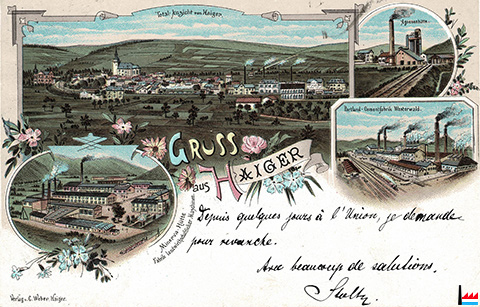 Total-Ansicht von Haiger.
Agnesenhütte.
Portland-Cementfabrik Westerwald.
GRUSS
aus HAIGER
Minerva Hütte
Fabrik landwirthschaftlicher Maschinen.
Depuis quelques jours à l'Union, je demande
pour revanche.
Avec beaucoup de salutions.
Verlag v. C. Weber, Haiger.